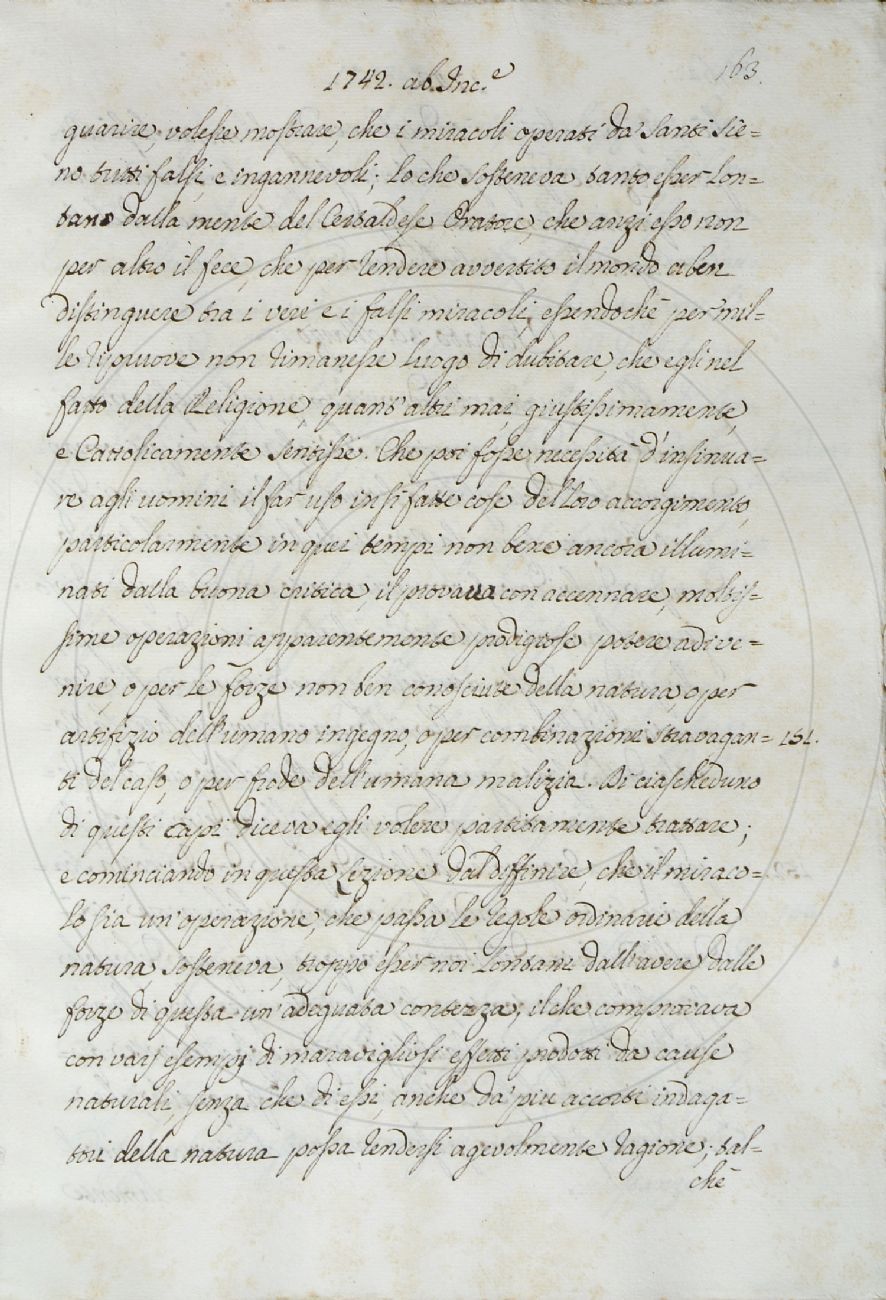 1742. ab. Inc.e
163.
guarire, volesse mostrare, che i miracoli operati da' Santi sie=
no tutti falsi, e ingannevoli; lo che sosteneva tanto esser lon=
tano dalla mente del Certaldese Oratore, che anzi esso non
per altro il fece, che per rendere avvertito il mondo a ben
distinguere tra i veri e i falsi miracoli, essendochè per mil=
le riprove non rimanesse luogo di dubitare, che egli nel
fatto della Religione, quant'altri mai, giustissimamente,
e Cattolicamente sentisse. Che poi fosse necessità d'insinua=
re agli uomini il far uso in sì fatte cose del loro accorgimento,
particolarmente in quei tempi non bene ancora illumi=
nati dalla buona critica, il provava con accennare, moltis=
sime operazioni apparentemente prodigiose potere adive=
nire, o per le forze non ben conosciute della natura, o per
artifizio dell'umano ingegno, o per combinazioni stravagan= 151.
ti del caso, o per frode dell'umana malizia. Di ciascheduno
di questi capi diceva egli volere partitamente trattare;
e cominciando in questa Lezione dal diffinire, che il miraco=
lo sia un'operazione, che passa le regole ordinarie della
natura, sosteneva, troppo esser noi lontani dall'avere dalle
forze di questa un'adeguata contezza; il che comprovava
con varj esempj di maravigliosi effetti prodotti da cause
naturali, senza che di essi, anche da' più accorti indaga=
tori della natura possa rendersi agevolmente ragione; tal=
chè